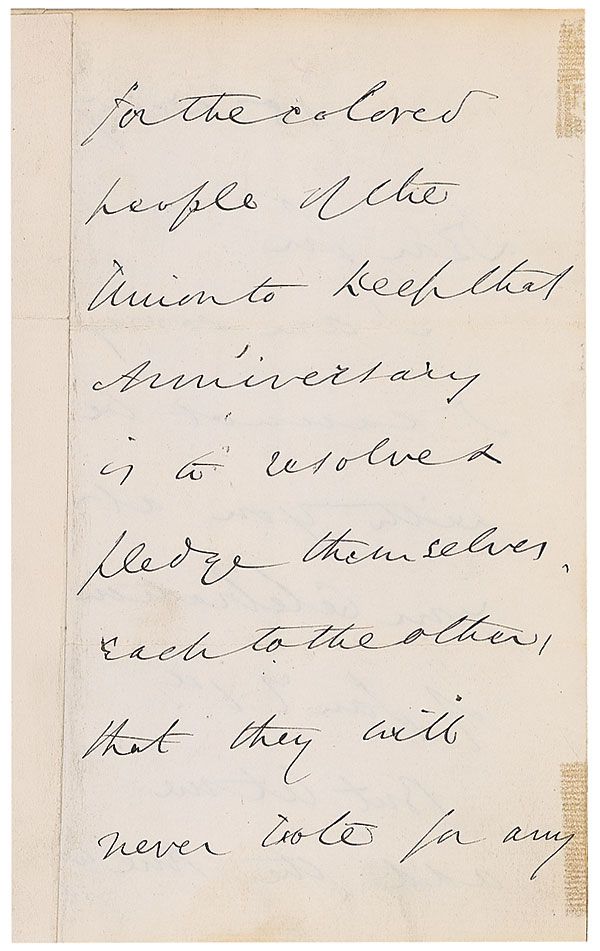 for the colored
people of the
Union to keep that
Anniversary
is to resolve &
pledge themselves,
each to the other,
that they will
never vote for any